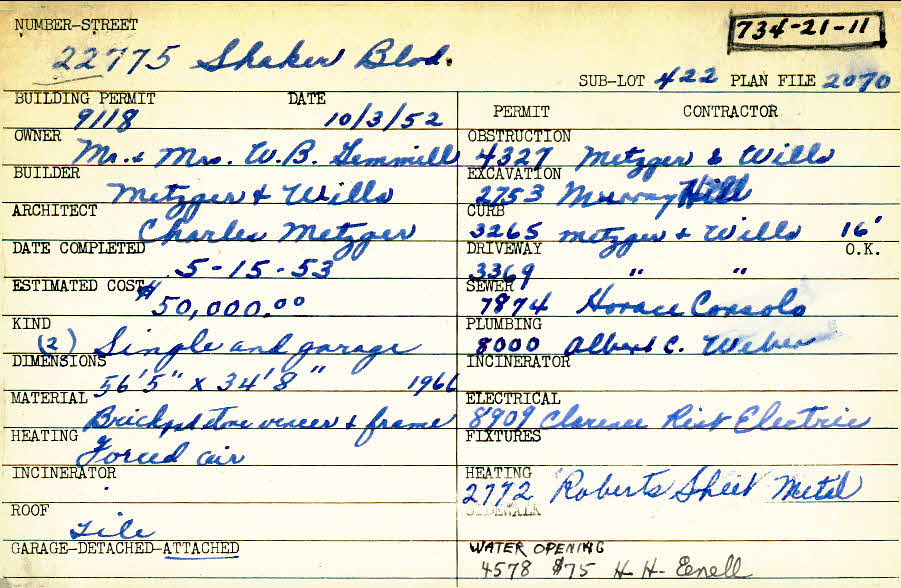 NUMBER-STREET
734-21-11
22775 Shaker Blvd.
SUB-LOT 422 PLAN FILE 2070
BUILDING PERMIT DATE
9118 10/3/52
PERMIT CONTRACTOR
OWNER
Mr. & Mrs. W.B. Gemmill
OBSTRUCTION
4327 Metzger & Wills
BUILDER
Metzger & Wills
EXCAVATION
2753 Murray Hill
ARCHITECT
Charles Metzger
CURB
3265 Metzger & Wills 16'
DATE COMPLETED
5-15-53
DRIVEWAY O.K.
3369 " "
ESTIMATED COST
$50,000.00
SEWER
7874 Horace Consolo
KIND
(2) Single and garage
PLUMBING
8000 Albert C. Weber
DIMENSIONS
56'5" x 34'8" 1966
INCINERATOR
MATERIAL
Brick stone veneer & frame
ELECTRICAL
8909 Clarence Rist Electric
HEATING
Forced air
FIXTURES
INCINERATOR
HEATING
2772 Roberts Sheet Metal
ROOF
Tile
SIDEWALK
GARAGE-DETACHED-ATTACHED
WATER OPENING
4578 $75 H H-